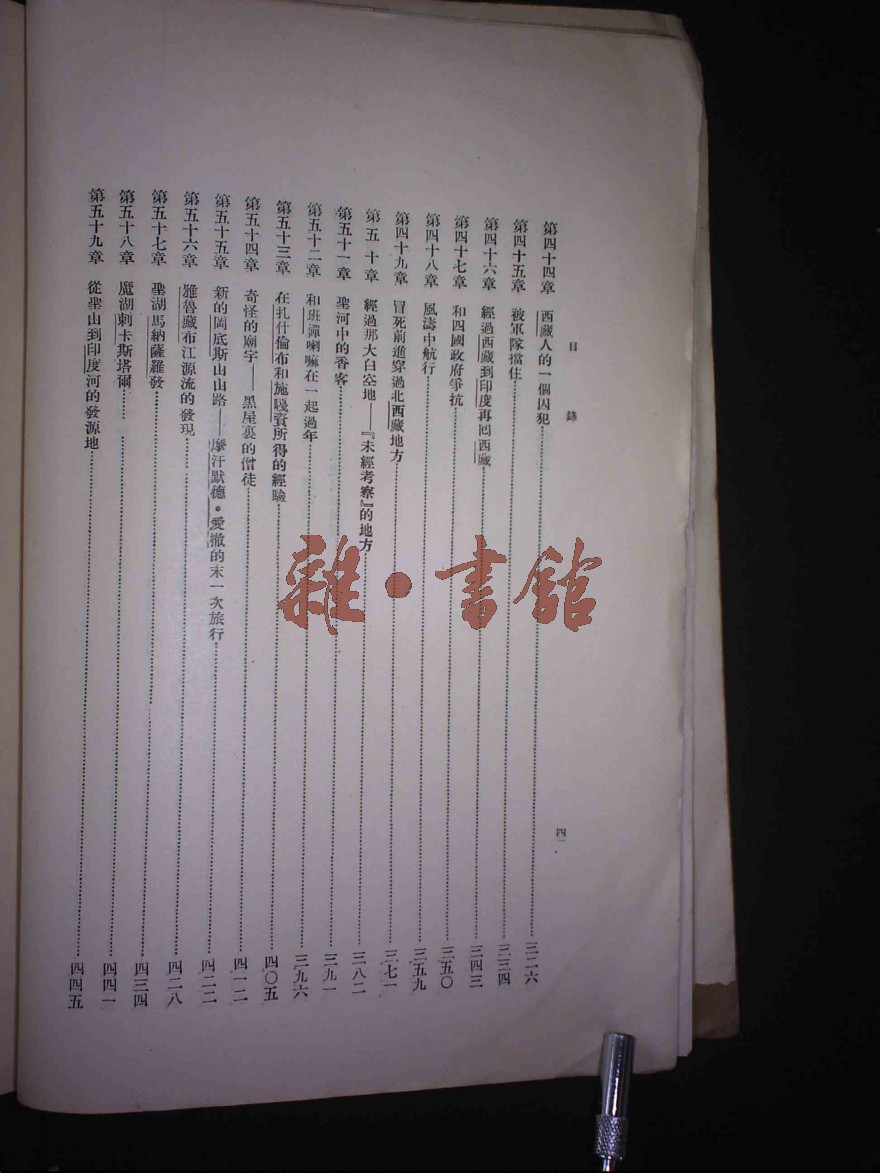 目錄
第四十四章 西藏人的一個囚犯……三二六
第四十五章 被軍隊擋住……三三四
第四十六章 經過西藏到印度再囘西藏……三四三
第四十七章 和四國政府爭抗……三五〇
第四十八章 風濤中航行……三五九
第四十九章 冒死前進穿過北西藏地方……三七一
第五十章 經過那大白空地——『未經考察』的地方……三八二
第五十一章 聖河中的香客……三九一
第五十二章 和班禪喇嘛在一起過年……三九六
第五十三章 在扎什倫布和施戞賽所得的經驗……四〇五
第五十四章 奇怪的廟宇——黑屋裏的僧徒……四一二
第五十五章 新的岡底斯山山路——摩汗默德•愛撒的末一次旅行……四二二
第五十六章 雅魯藏布江源流的發現……四二八
第五十七章 聖湖馬納薩羅發……四三四
第五十八章 魔湖剌卡斯塔爾……四四一
第五十九章 從聖山到印度河的發源地……四四五
四
雜•書館